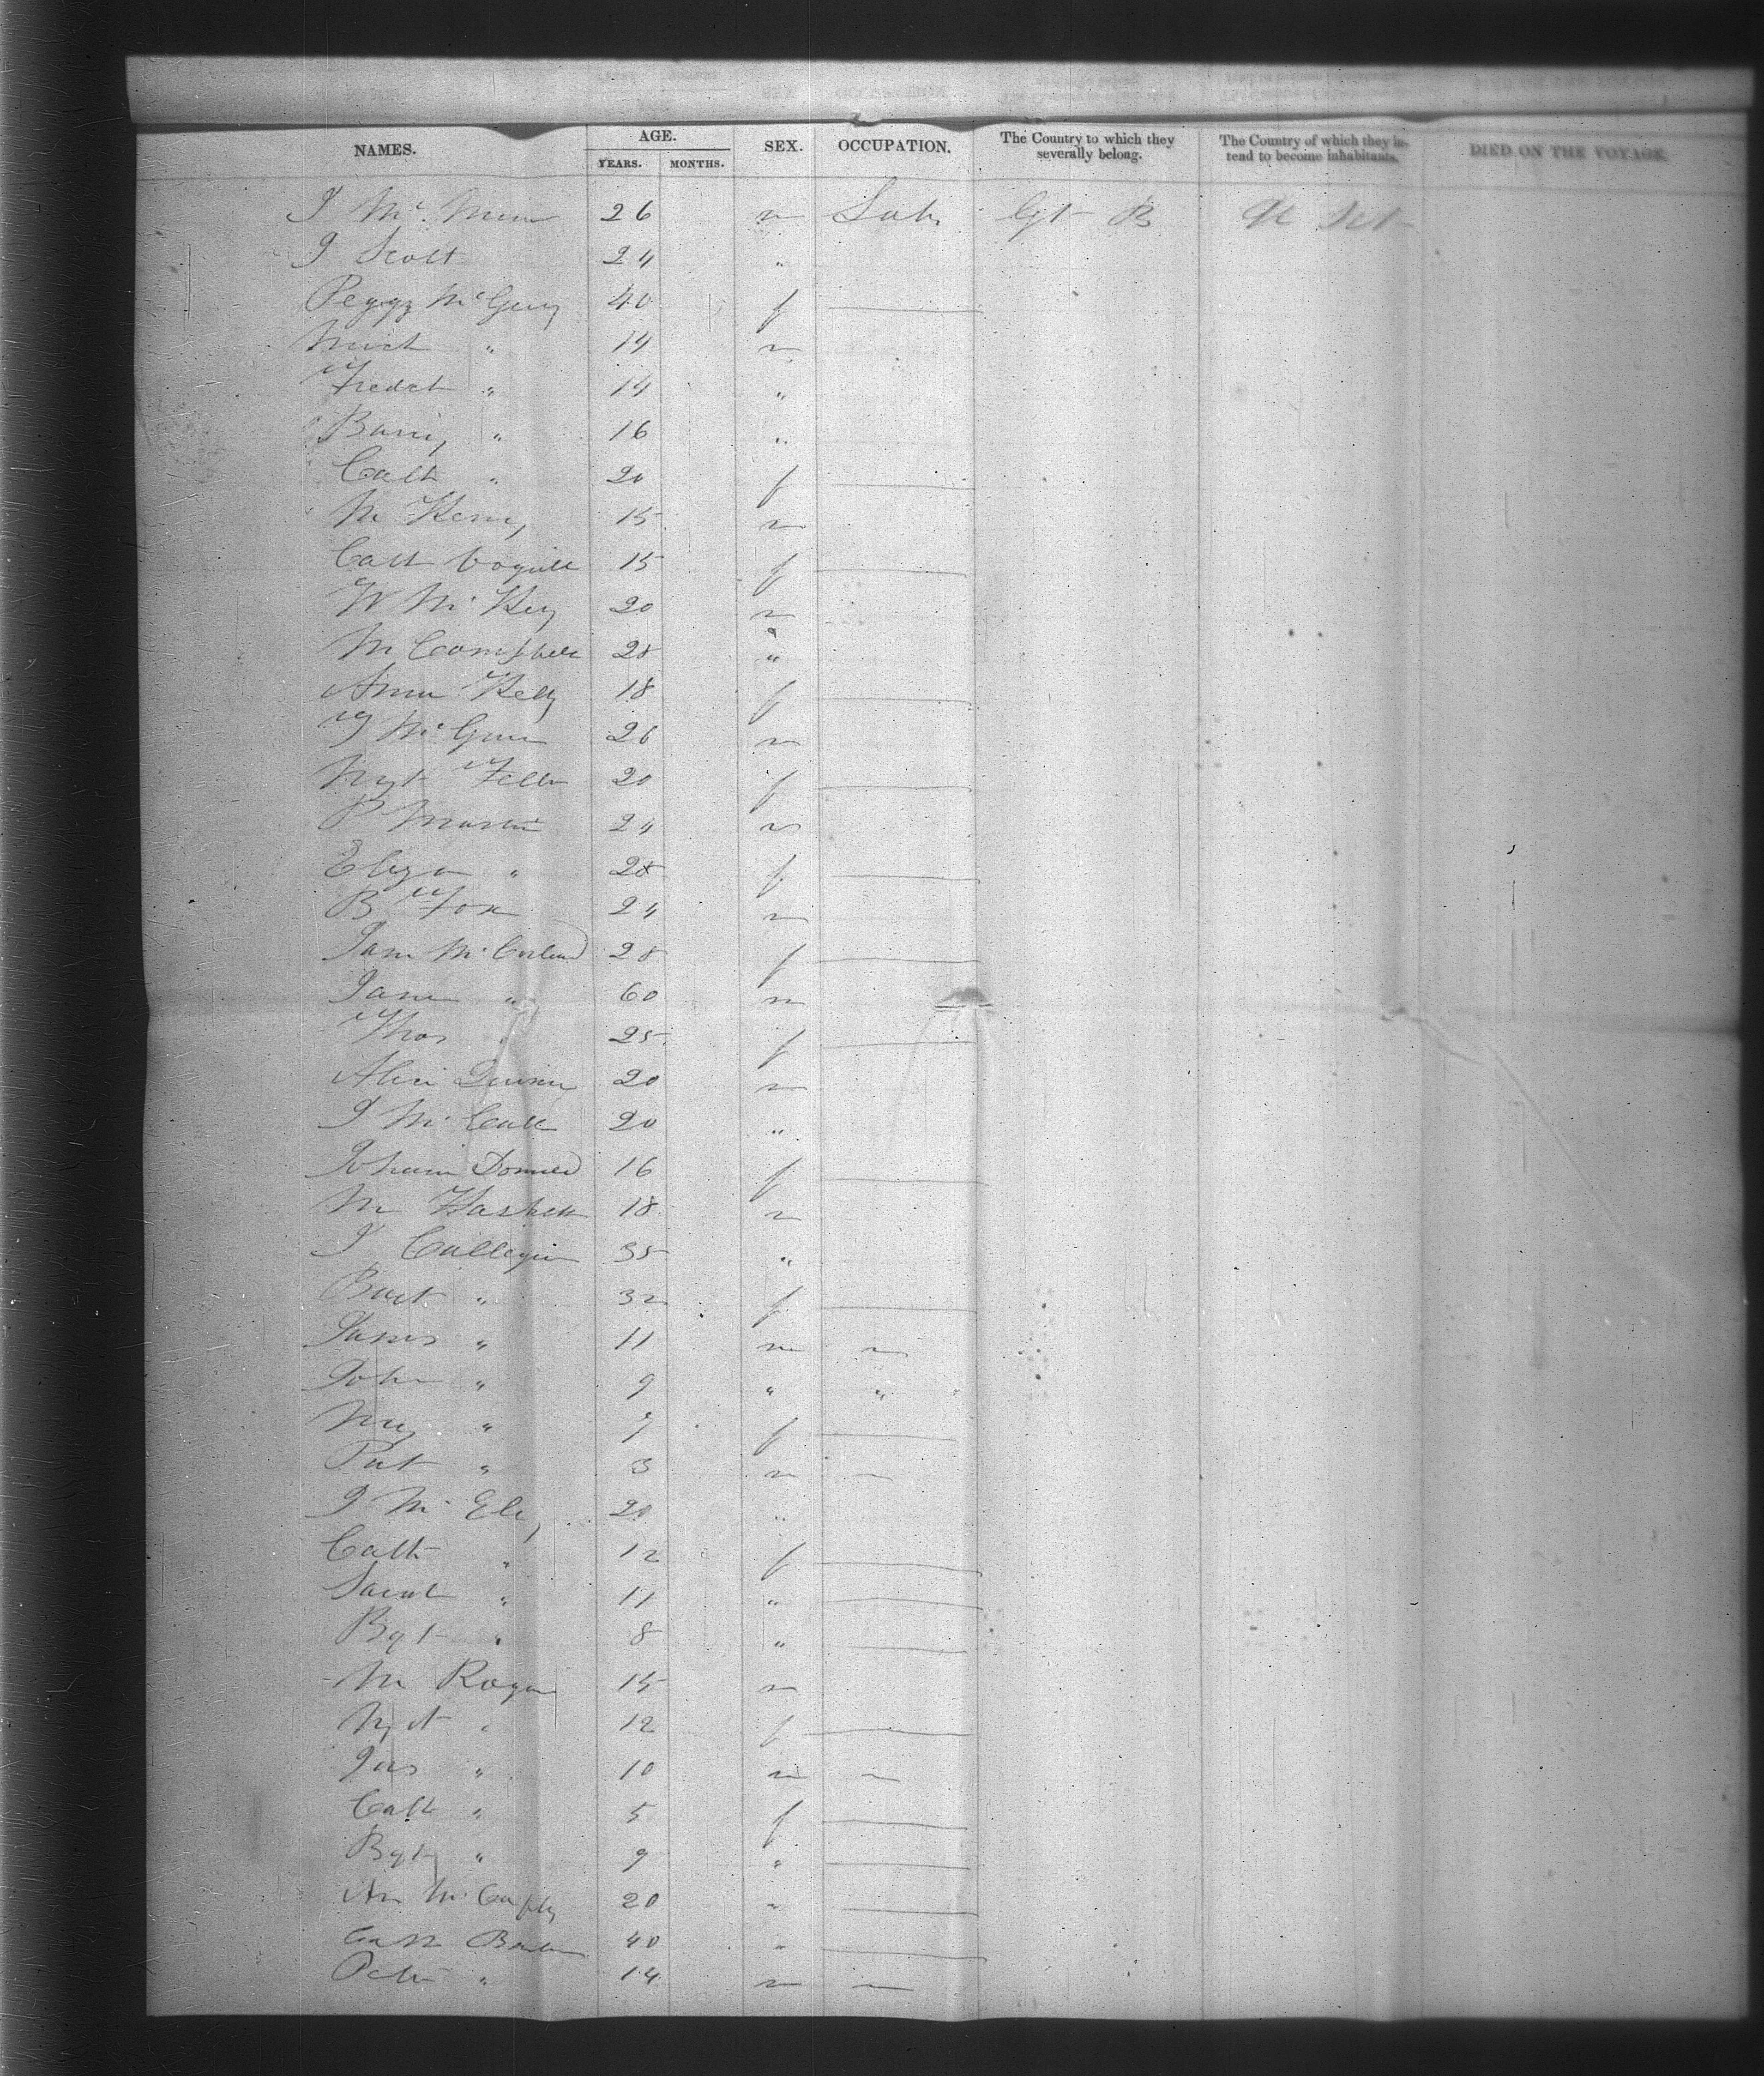 NAMES. AGE. SEX. OCCUPATION. The Country to which they severally belong. The Country of which they intend to become inhabitants. DIED ON THE VOYAGE
YEARS. MONTHS.
J Mc 26 m Lab. Gt B U St
J Scott 24 "
Peggy McGuy 40 f
Mich " 14 m
Fredck " 14 "
Barny " 16 "
Cath " 20 f
M Keny 15 m
Cath 15 f
W McKey 20 m
M Campbell 28 "
Anna Kelly 18 f
J McGunn 26 m
Mgt 20 f
P Martin 24 m
Eliza " 28 f
B Fox 24 m
Jane 28 f
Jane " 60 m
Thos " 25 f
Alice Quinn 20 m
J McCall 20 "
16 f
M Haskett 18 m
J 35 "
" 32 f
James " 11 m
John " 9 " "
My " 7 f
Pat " 3 m
J McEly 20 "
Cath " 12 f
Sarah " 11 "
Bgt " 8 "
M Rogan 15 m
Mgt " 12 f
Jas " 10 m
Cath " 5 f
Bgt " 9 "
An 20 "
Cath 40 "
Peter " 14 m